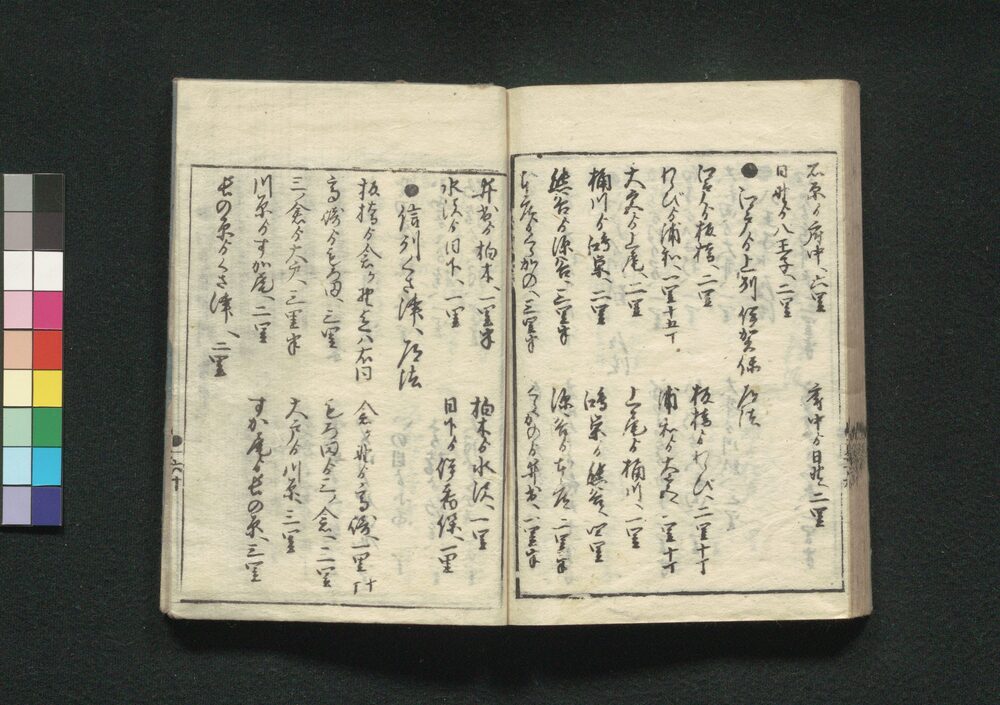 石原ゟ府中へ六里　府中ゟ日野へ二里
日野ゟ八王子へ二里
●江戸ゟ上列伊香保　道法
江戸ゟ板橋へ二里　板橋ゟわらびへ二里十丁
わらびゟ浦和へ一里十五丁　浦和ゟ大宮へ一里十丁
大宮ゟ上尾へ二里　上尾ゟ桶川へ一里
桶川ゟ鴻巣へ二里　鴻巣ゟ熊谷へ四里
熊谷ゟ深谷へ三里半　深谷ゟ本庄へ二里半
本庄ゟくらがのへ三里半　くらがのゟ井出へ一里半
井出ゟ柏木へ一里半　柏木ゟ水沢へ一里
水沢ゟ日下へ一里　日下ゟ伊香保へ一里
●信列くさ津へ道法
板橋ゟ倉ヶ野迄ハ右同　倉ヶ野ゟ高崎へ一里十丁
高崎ゟむろ田へ三里　むろ田ゟ三ノ倉へ二里
三ノ倉ゟ大戸へ三里半　大戸ゟ川原へ三里
川原ゟすか尾へ二里　すか尾ゟ長の原へ三里
長の原ゟくさ津へ二里